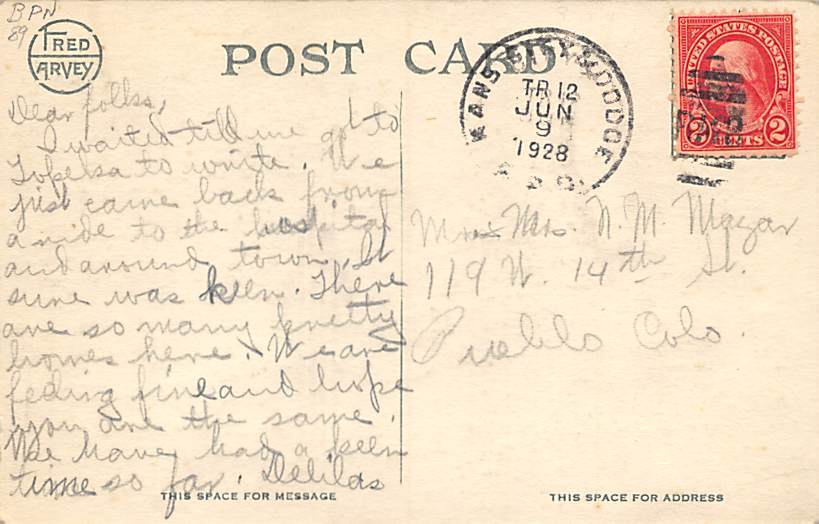 BPN
89
FRED
HARVEY
POST CARD
KANS. CITY & DODGE
TR 12
JUN
9
1928
R.P.O.
UNITED STATES POSTAGE
2 CENTS 2
Dear folks,
I waited till we got to
Topeka to write. We
just came back from
a ride to the hospital
and around town. It
sure was keen. There
are so many pretty
homes here. We are
feeling fine and hope
you are the same.
We have had a keen
time so far. Delilas
Mr. & Mrs. N. M. Mazar
119 W. 14th St.
Pueblo Colo.
THIS SPACE FOR MESSAGE
THIS SPACE FOR ADDRESS